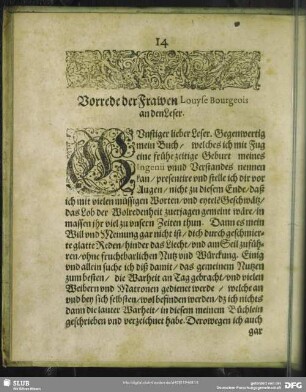 14
Vorrede der Frawen Louyse Bourgeois
an den Leser.
GUnstiger lieber Leser. Gegenwertig
mein Buch/ welches ich mit Fug
eine frühezeitige Geburt meines
Ingenii vnnd Verstandes nennen
kan/ præsentire vnd stelle ich dir vor
Augen/ nicht zu diesem Ende/ daß
ich mit vielen müssigen Worten/ vnd eyteln Geschwätz/
das Lob der Wolredenheit zuerjagen gemeint wäre/ in
massen ihr viel zu vnsern Zeiten thun. Dann es mein
Will vnd Meinung gar nicht ist/ dich durch geschmier-
te glatte Reden/ hinder das Liecht/ vnd am Seil zuführ-
ren/ ohne fruchtbarlichen Nutz vnd Würckung. Einig
vnd allein suche ich diß damit/ das gemeinen Nutzen
zum besten/ die Warheit an Tag gebracht/ vnd vielen
Weibern vnd Matronen gedienet werde/ welche an
vnd bey sich selbsten/ wol befinden werden/ dz ich nichts
dann die lauter Warheit/ in diesem meinem Büchlein
geschrieben vnd verzeichnet habe. Derowegen ich auch
gar
SLUB
DFG